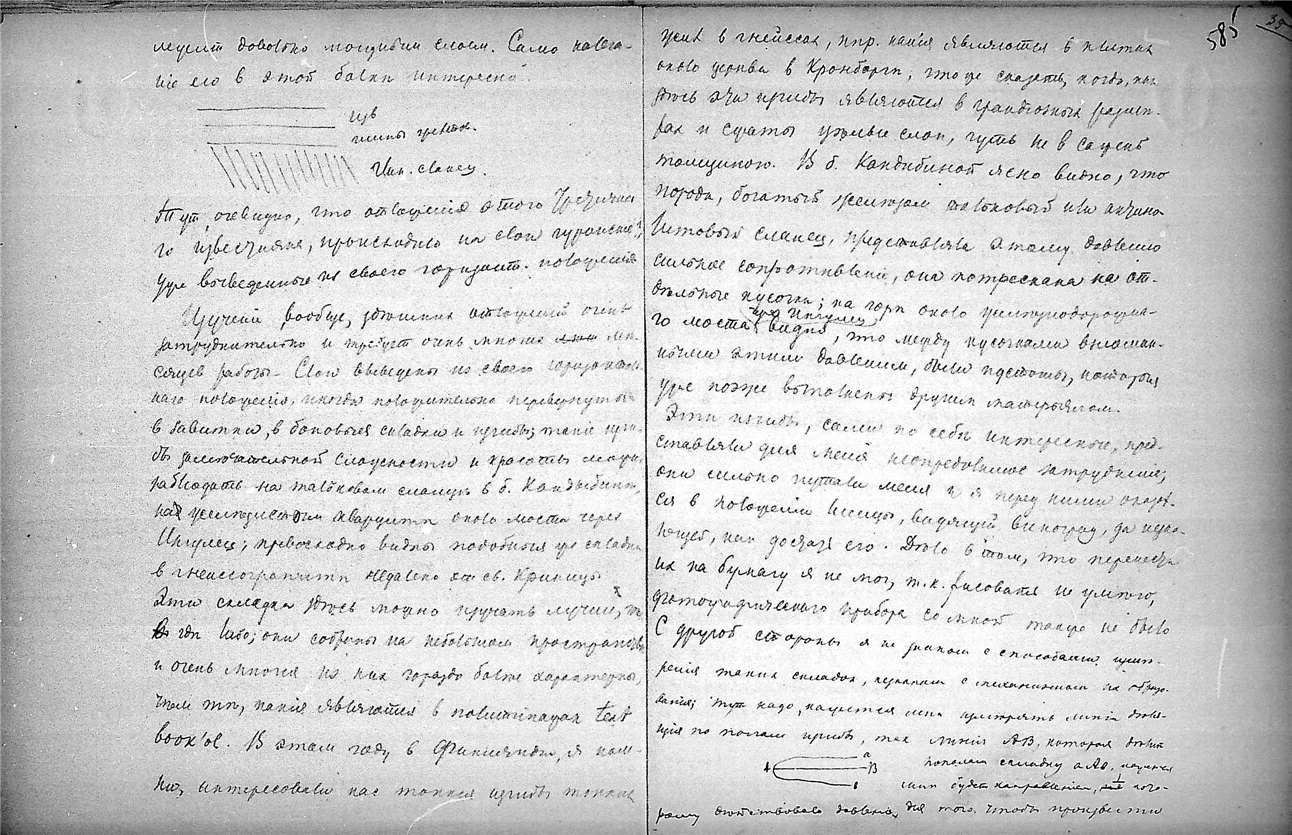 лежит довольно мощным слоем. Само налега-
ніе его в этой балки интересно.
изв
глины третич.
Глин. сланец.
Тут, очевидно, что отложенія этого Третично-
го известняка, происходило на слои
уже выведенные из своего горизонт. положенія
Изученіе, вообще, здешних отложеній очень
затруднительно и требует очень многих ме-
сяцев работы. Слои выведены из своего горизонталь-
наго положенія, иногда положительно перевернуты
в завитки, в боковыя складки и изгибы; такіе изги-
бы замечательной сложности и красоты можно
наблюдать на тальковом сланце в б. Кандыбиной,
на железистом кварците около моста через
Ингулец; превосходно видны подобныя же складки
в гнейсогранити недалеко от св. Криницы
Эти складки здесь можно изучать лучше, ч
гди либо; они собраны на небольшом пространстве
и очень многія из них гораздо болие характерны,
чим ти, какія являются в политипажах text
book'ов. В этом году в Финляндіи, я пом-
ню, интересовали нас тонкія изгибы тонких
585
35
жил в гнейссах, нпр. какія являются в плитах
около церкви в Кронборги; что же сказать, когда, как
здесь эти изгибы являются в грандіозных размѣ-
рах и сжаты целые слои, чуть не в сажень
толщиною. В б. Кандыбиной ясно видно, что
порода, богатый железом тальковый или актино-
литовый сланец, представляла этому давленію
сильное сопротивленіе, она потрескана на от-
дѣльные кусочки; на горѣ около железнодорожна-
го моста чрез Ингулец видно, что между кусочками выломан-
ными этим давленіем, были пустоты, которыя
уже позже выполнены другим матерьялом.
Эти изгибы, сами по себѣ интересные, пред-
ставляли для меня неопредолимое затрудненіе,
они сильно путали меня и я перед ними оказал-
ся в положеніи лисицы, видящей виноград, да
ющей, как достать его. Дело в том, что перенести
их на бумагу я не мог, т. к. рисовать не умею,
фотографическаго прибора со мной также не было
С другой стороны я не знаком с способами изме-
ренія таких складок, незнаком с механизмом их образо-
ванія; тут надо, кажется мне измерять линіи давле-
нія по изгибу, так линія AB, которая делит
a
A
B
пополам складку aAb, кажется
мне будет направленіем, по кото-
рому действовало давленіе для того, чтобы произвести